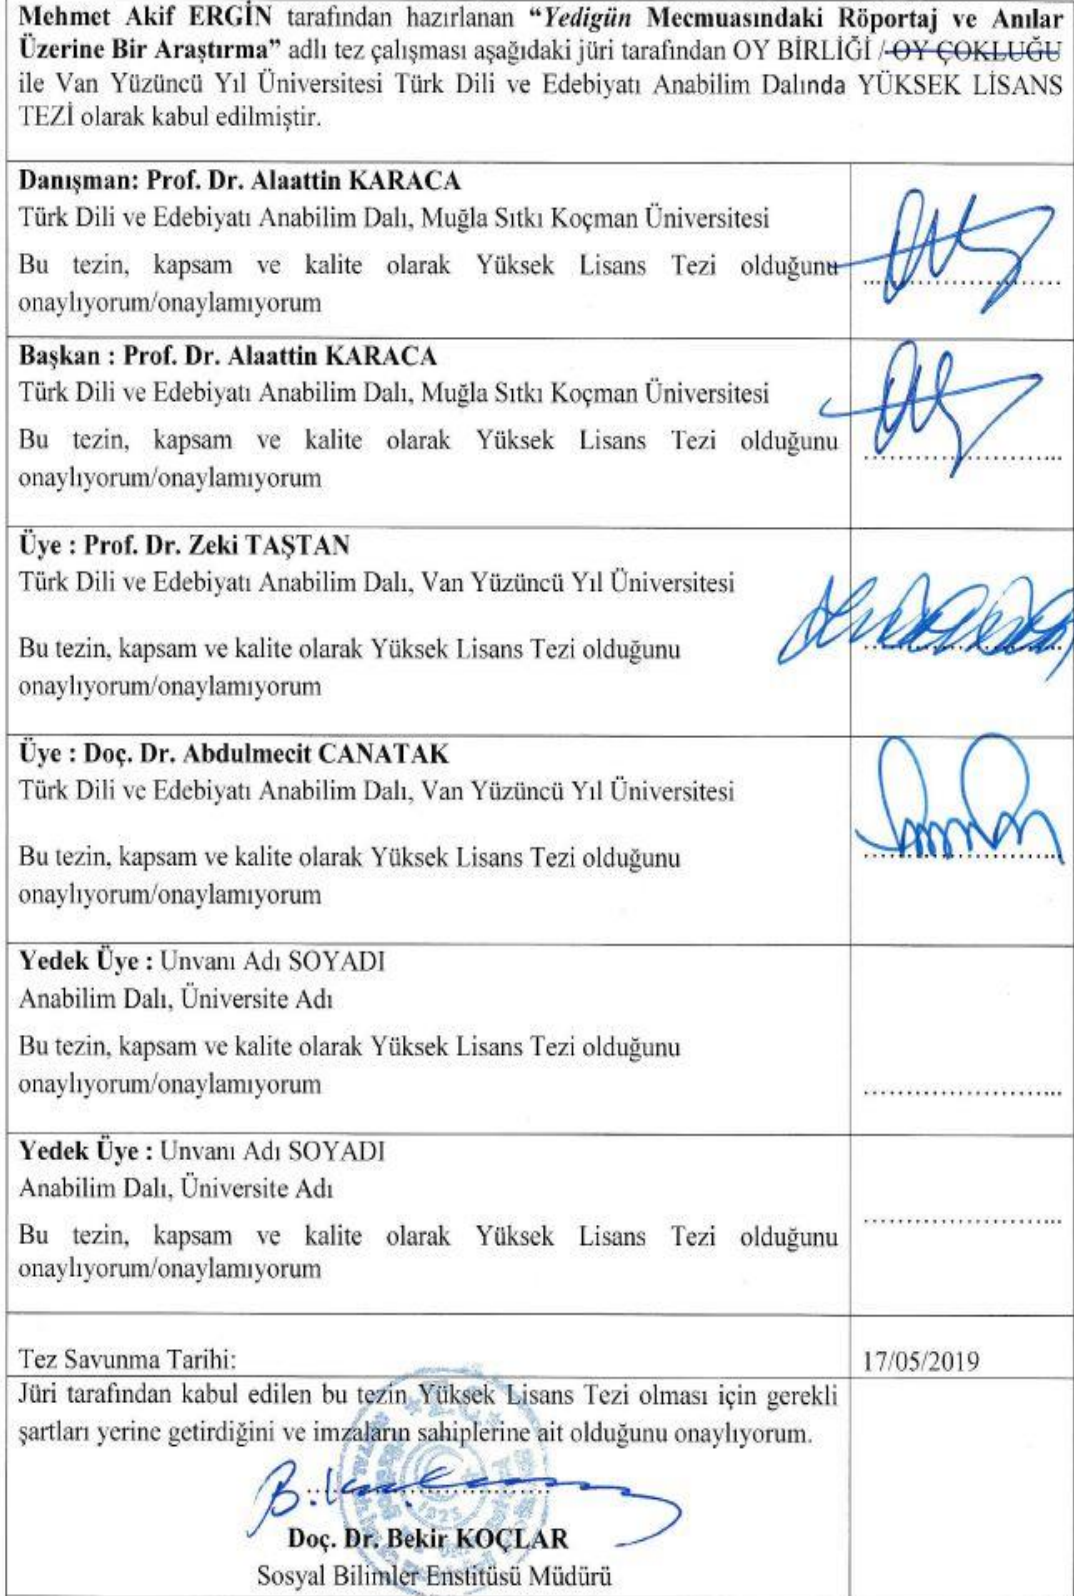 Mehmet Akif ERGİN tarafından hazırlanan “Yedigün Mecmuasındaki Röportaj ve Anılar
Üzerine Bir Araştırma” adlı tez çalışması aşağıdaki jüri tarafından OY BİRLİĞİ / OY ÇOKLUĞU
ile Van Yüzüncü Yıl Üniversitesi Türk Dili ve Edebiyatı Anabilim Dalında YÜKSEK LİSANS
TEZİ olarak kabul edilmiştir.
Danışman: Prof. Dr. Alaattin KARACA
Türk Dili ve Edebiyatı Anabilim Dalı, Muğla Sıtkı Koçman Üniversitesi
Bu tezin, kapsam ve kalite olarak Yüksek Lisans Tezi olduğunu
onaylıyorum/onaylamıyorum
Başkan : Prof. Dr. Alaattin KARACA
Türk Dili ve Edebiyatı Anabilim Dalı, Muğla Sıtkı Koçman Üniversitesi
Bu tezin, kapsam ve kalite olarak Yüksek Lisans Tezi olduğunu
onaylıyorum/onaylamıyorum
Üye : Prof. Dr. Zeki TAŞTAN
Türk Dili ve Edebiyatı Anabilim Dalı, Van Yüzüncü Yıl Üniversitesi
Bu tezin, kapsam ve kalite olarak Yüksek Lisans Tezi olduğunu
onaylıyorum/onaylamıyorum
Üye : Doç. Dr. Abdulmecit CANATAK
Türk Dili ve Edebiyatı Anabilim Dalı, Van Yüzüncü Yıl Üniversitesi
Bu tezin, kapsam ve kalite olarak Yüksek Lisans Tezi olduğunu
onaylıyorum/onaylamıyorum
Yedek Üye : Unvanı Adı SOYADI
Anabilim Dalı, Üniversite Adı
Bu tezin, kapsam ve kalite olarak Yüksek Lisans Tezi olduğunu
onaylıyorum/onaylamıyorum
Yedek Üye : Unvanı Adı SOYADI
Anabilim Dalı, Üniversite Adı
Bu tezin, kapsam ve kalite olarak Yüksek Lisans Tezi olduğunu
onaylıyorum/onaylamıyorum
Tez Savunma Tarihi: 17/05/2019
Jüri tarafından kabul edilen bu tezin Yüksek Lisans Tezi olması için gerekli
şartları yerine getirdiğini ve imzaların sahiplerine ait olduğunu onaylıyorum.
Doç. Dr. Bekir KOÇLAR
Sosyal Bilimler Enstitüsü Müdürü